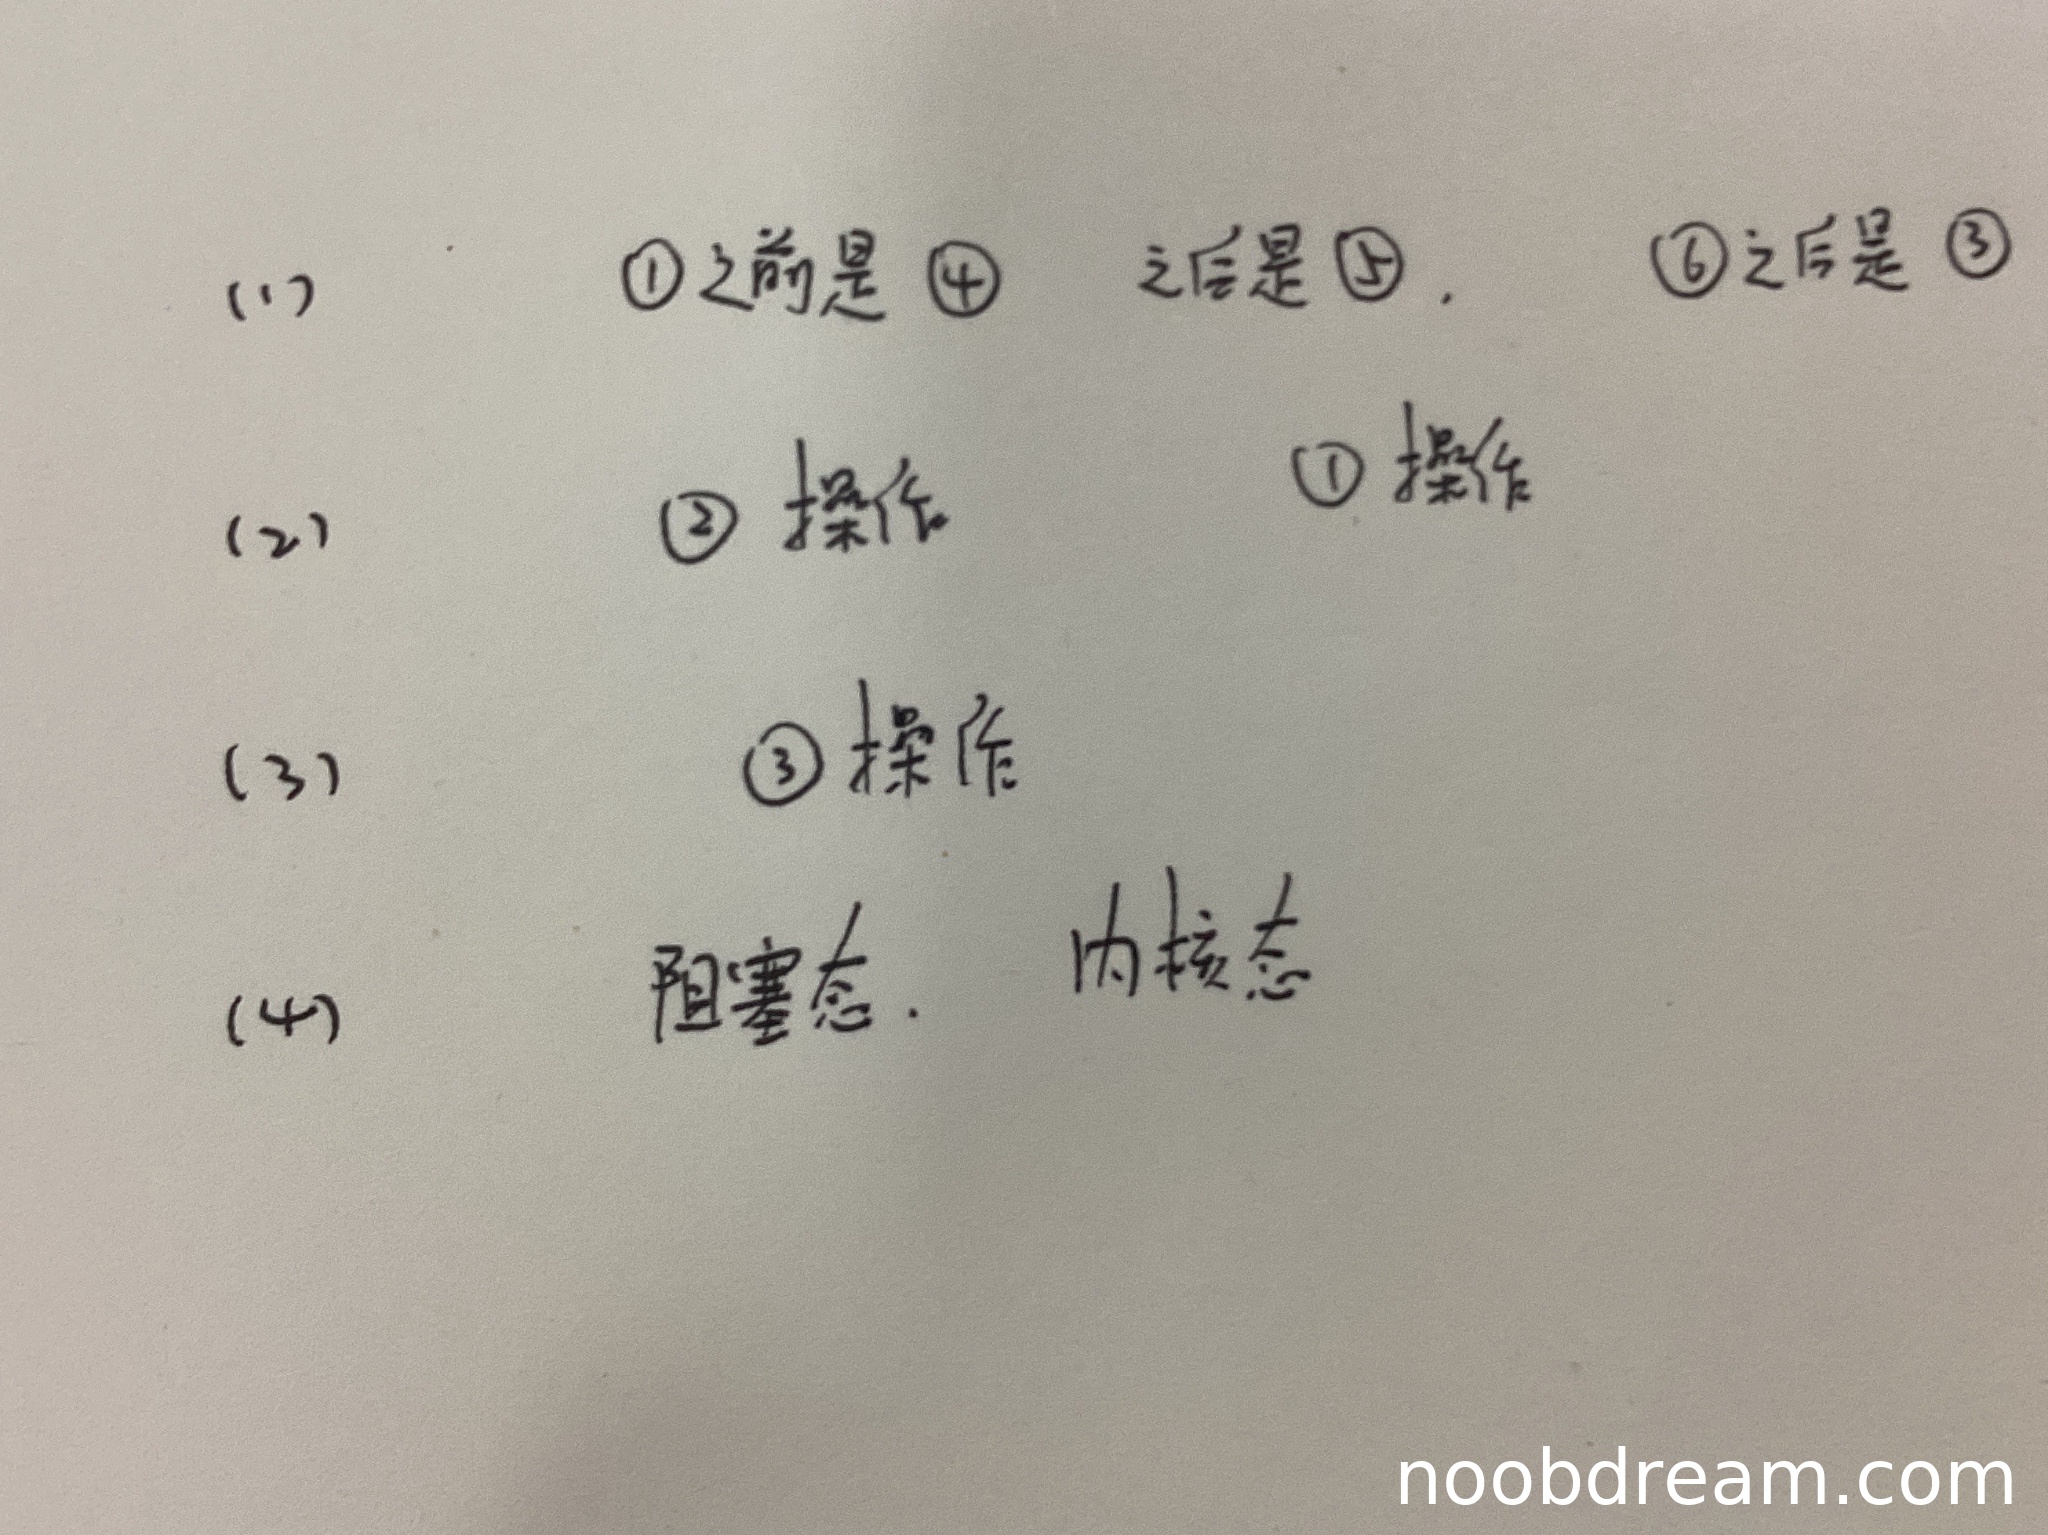 (1) ①之前是④ 之后是⑤. ⑥之后是③
(2) ②操作 ①操作
(3) ③操作
(4) 阻塞态. 内核态
noobdream.com